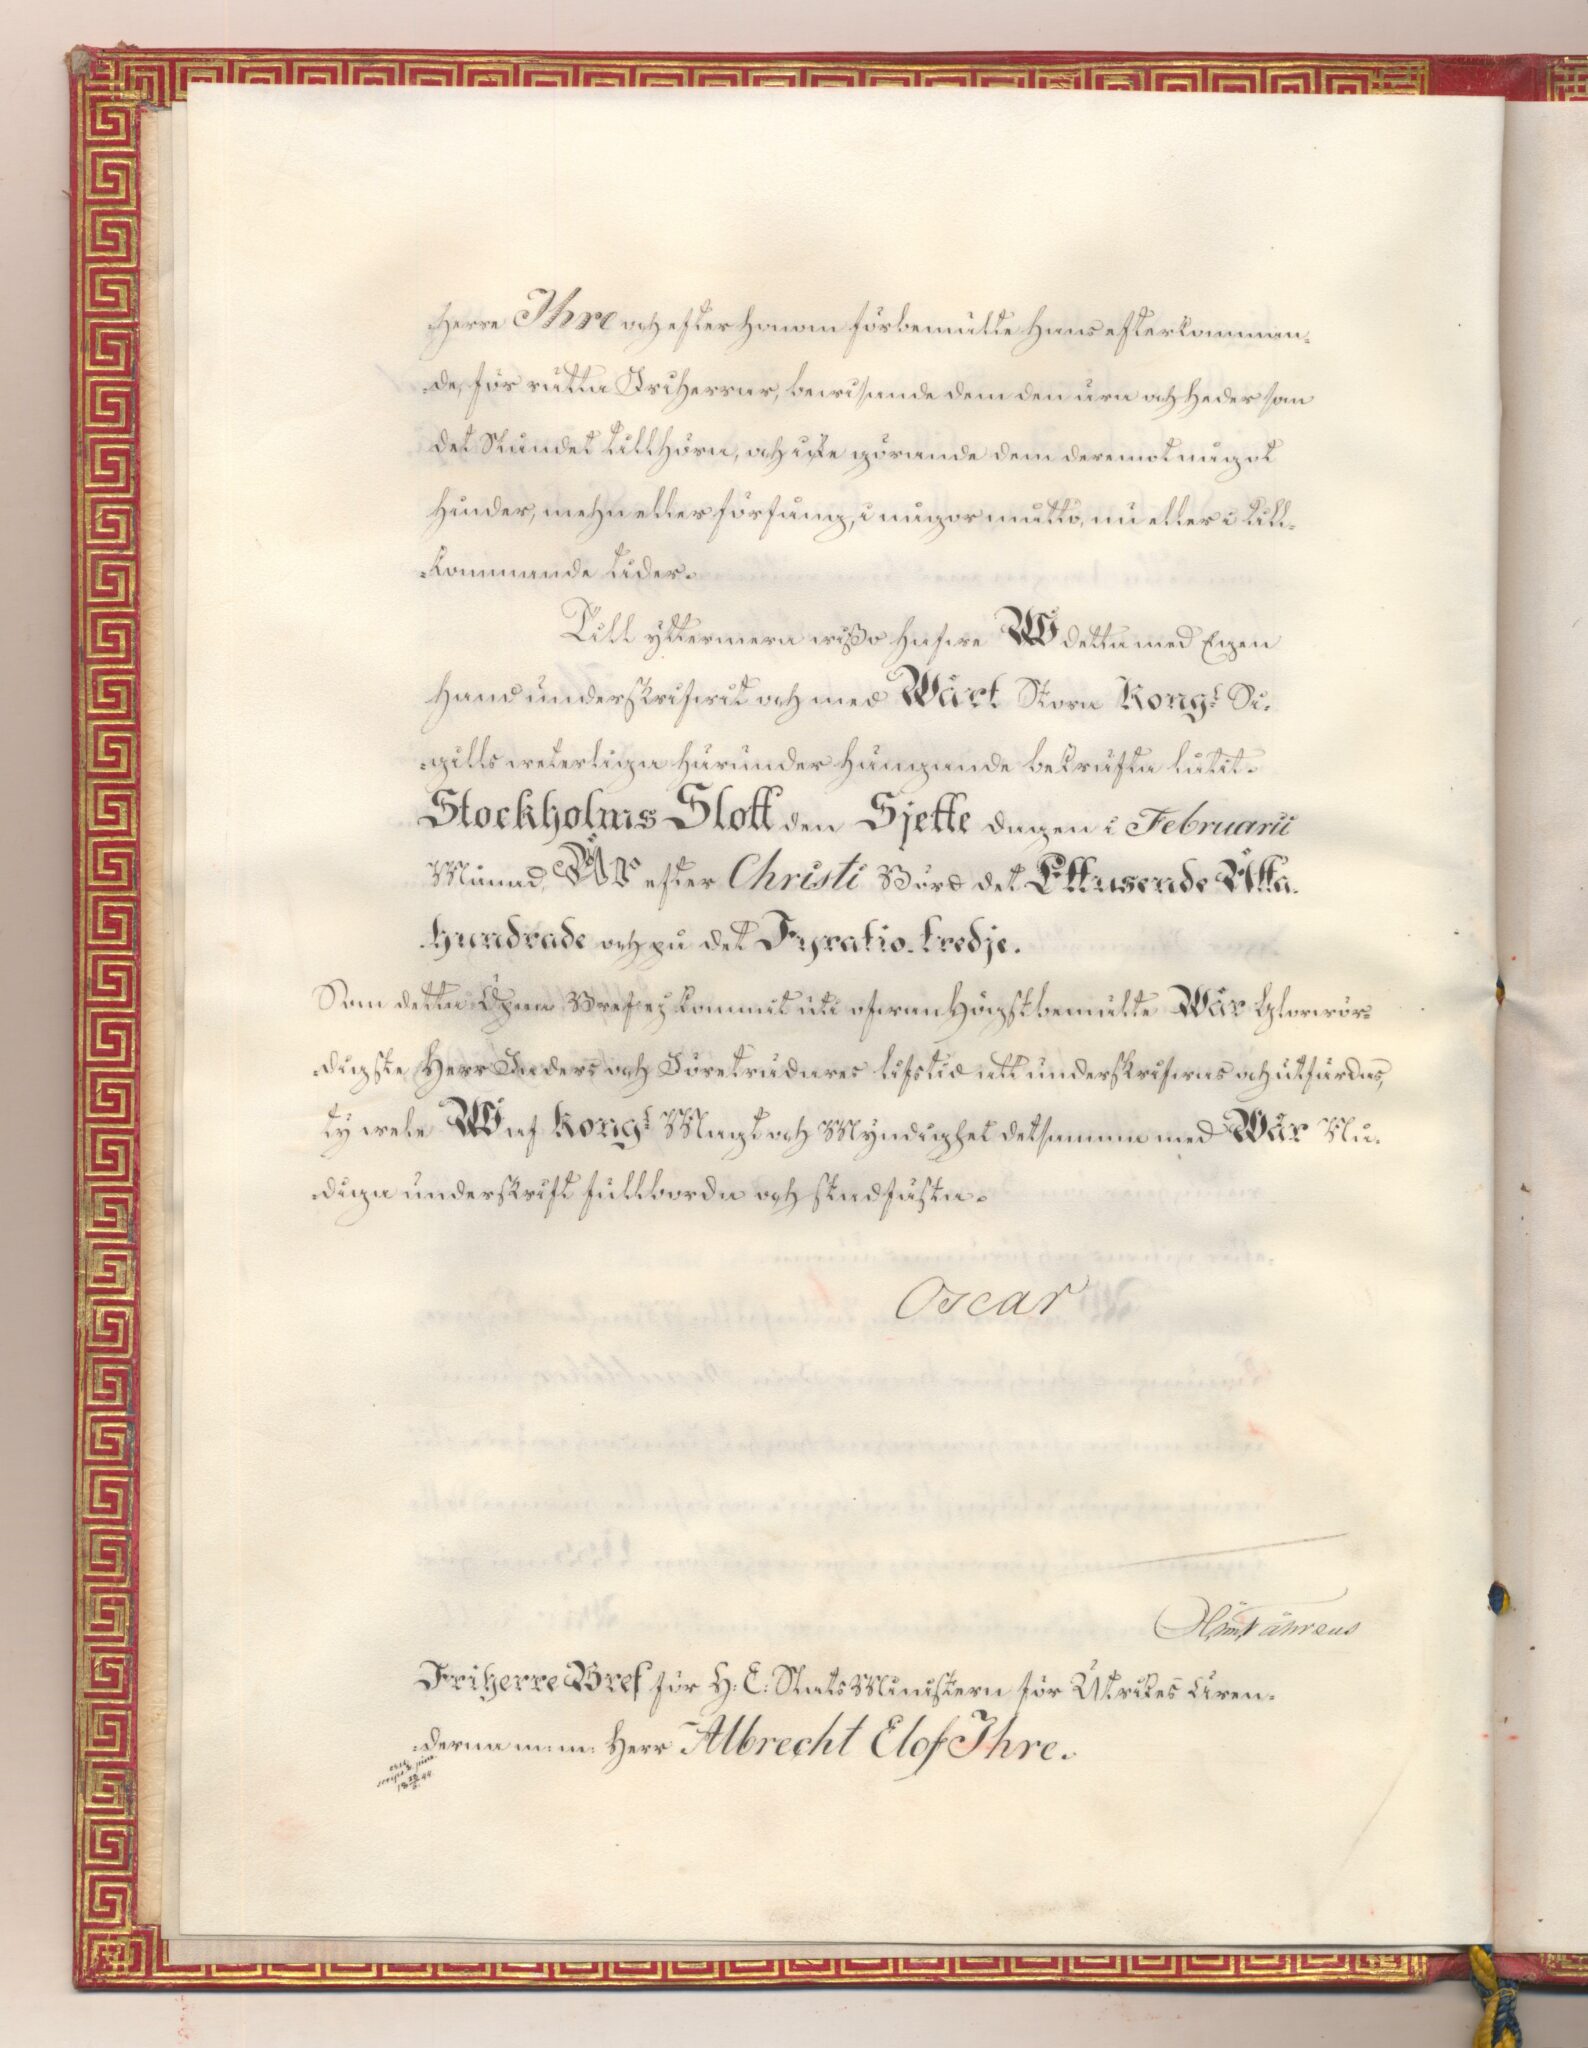 Herre Ihre och efter honom förbemälte Hans efterkomman-
de, för rätta Friherrar, bewisande dem den ära och heder som
det Ståndet tillhöra, och icke görande dem deremot något
hinder, mehn eller förfång, i någor måtto, nu eller i till-
kommande tider.
Till yttermera wißo hafwe Wi detta med Egen
hand underskrifwit och med Wårt Stora Kongl. Si-
gills weterliga härunder hängande bekräfta låtit.
Stockholms Slott den Sjette dagen i Februarii
Månad, År efter Christi Börd det Ettusende Åtta-
hundrade och på det Fyratio-tredje.
Som detta Öpna Bref ej kommit uti ofwan Högstbemälte Wår Glorwör-
digste Herr Faders och Företrädares lifstid att underskrifwas och utfärdas,
ty wele Wi af Kongl. Magt och Myndighet detsamma med Wår Nå-
diga underskrift fullborda och stadfästa.
Oscar
Friherre Bref för H: E: Stats Ministern för Utrikes Ären-
derna m: m: Herr Albrecht Elof Ihre.